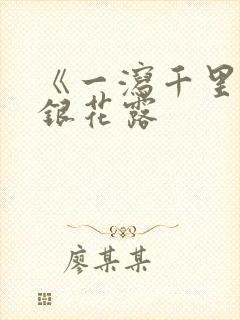 《一瀉千里
銀花露
廖某某